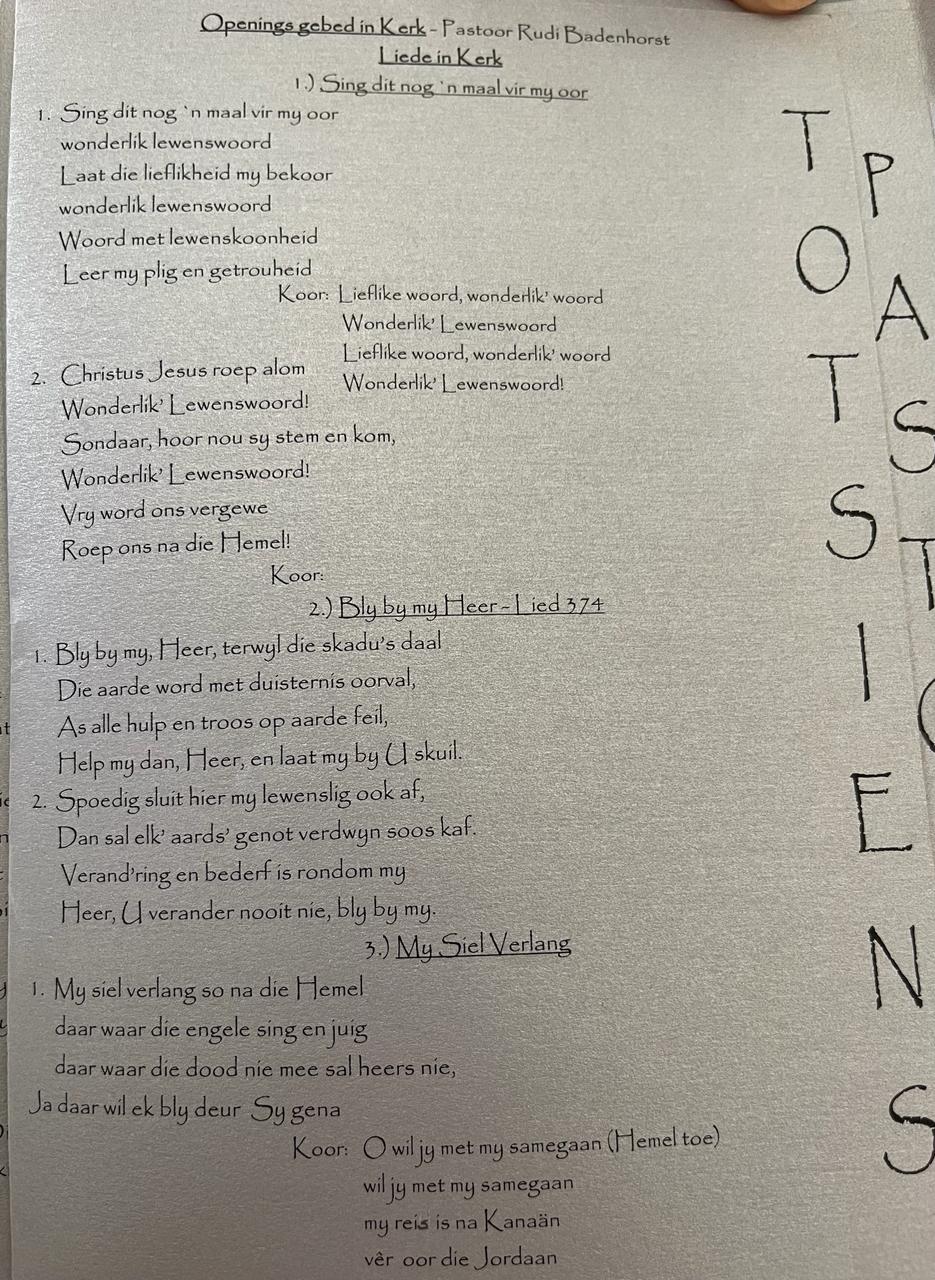 Openings gebed in Kerk - Pastoor Rudi Badenhorst
Liede in Kerk
1.) Sing dit nog `n maal vir my oor
1. Sing dit nog `n maal vir my oor
wonderlik lewenswoord
Laat die lieflikheid my bekoor
wonderlik lewenswoord
Woord met lewenskoonheid
Leer my plig en getrouheid
Koor: Lieflike woord, wonderlik' woord
Wonderlik' Lewenswoord
Lieflike woord, wonderlik' woord
Wonderlik' Lewenswoord!
2. Christus Jesus roep alom
Wonderlik' Lewenswoord!
Sondaar, hoor nou sy stem en kom,
Wonderlik' Lewenswoord!
Vry word ons vergewe
Roep ons na die Hemel!
Koor:
2.) Bly by my Heer - Lied 374
1. Bly by my, Heer, terwyl die skadu's daal
Die aarde word met duisternis oorval,
As alle hulp en troos op aarde feil,
Help my dan, Heer, en laat my by U skuil.
2. Spoedig sluit hier my lewenslig ook af,
Dan sal elk' aards' genot verdwyn soos kaf.
Verand'ring en bederf is rondom my
Heer, U verander nooit nie, bly by my.
3.) My Siel Verlang
1. My siel verlang so na die Hemel
daar waar die engele sing en juig
daar waar die dood nie mee sal heers nie,
Ja daar wil ek bly deur Sy gena
Koor: O wil jy met my samegaan (Hemel toe)
wil jy met my samegaan
my reis is na Kanaän
vêr oor die Jordaan
TOTSIENS
PAST